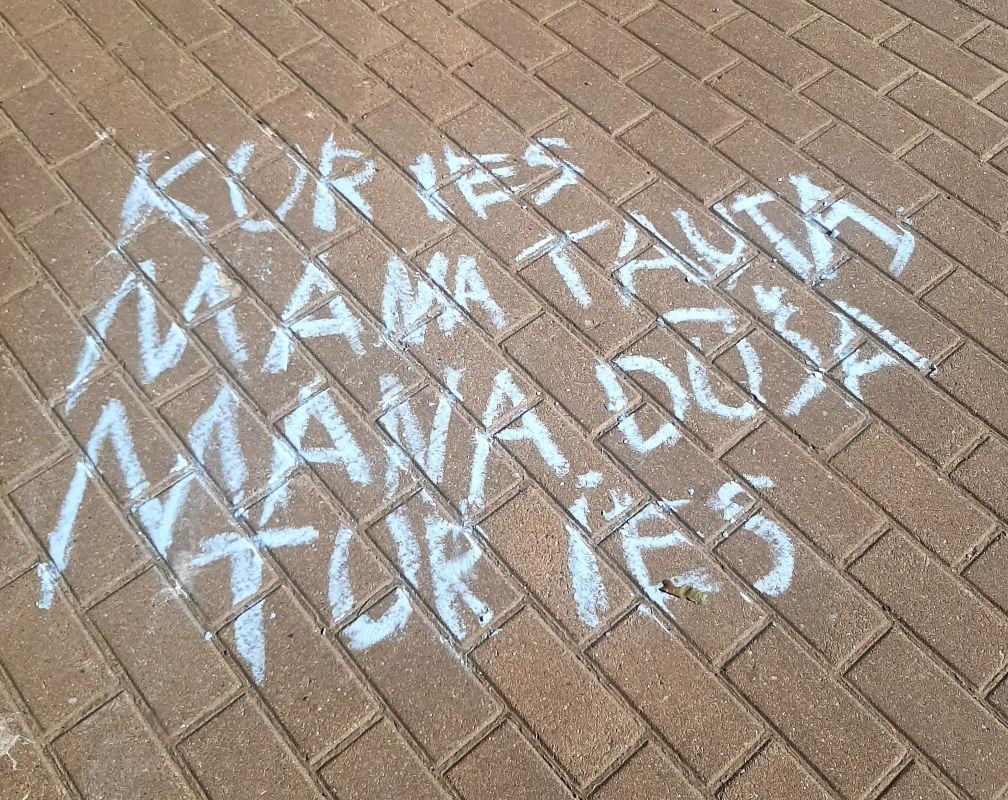 KUR IES
MANA TAUTA
MANA DŪŠA
TUR IES